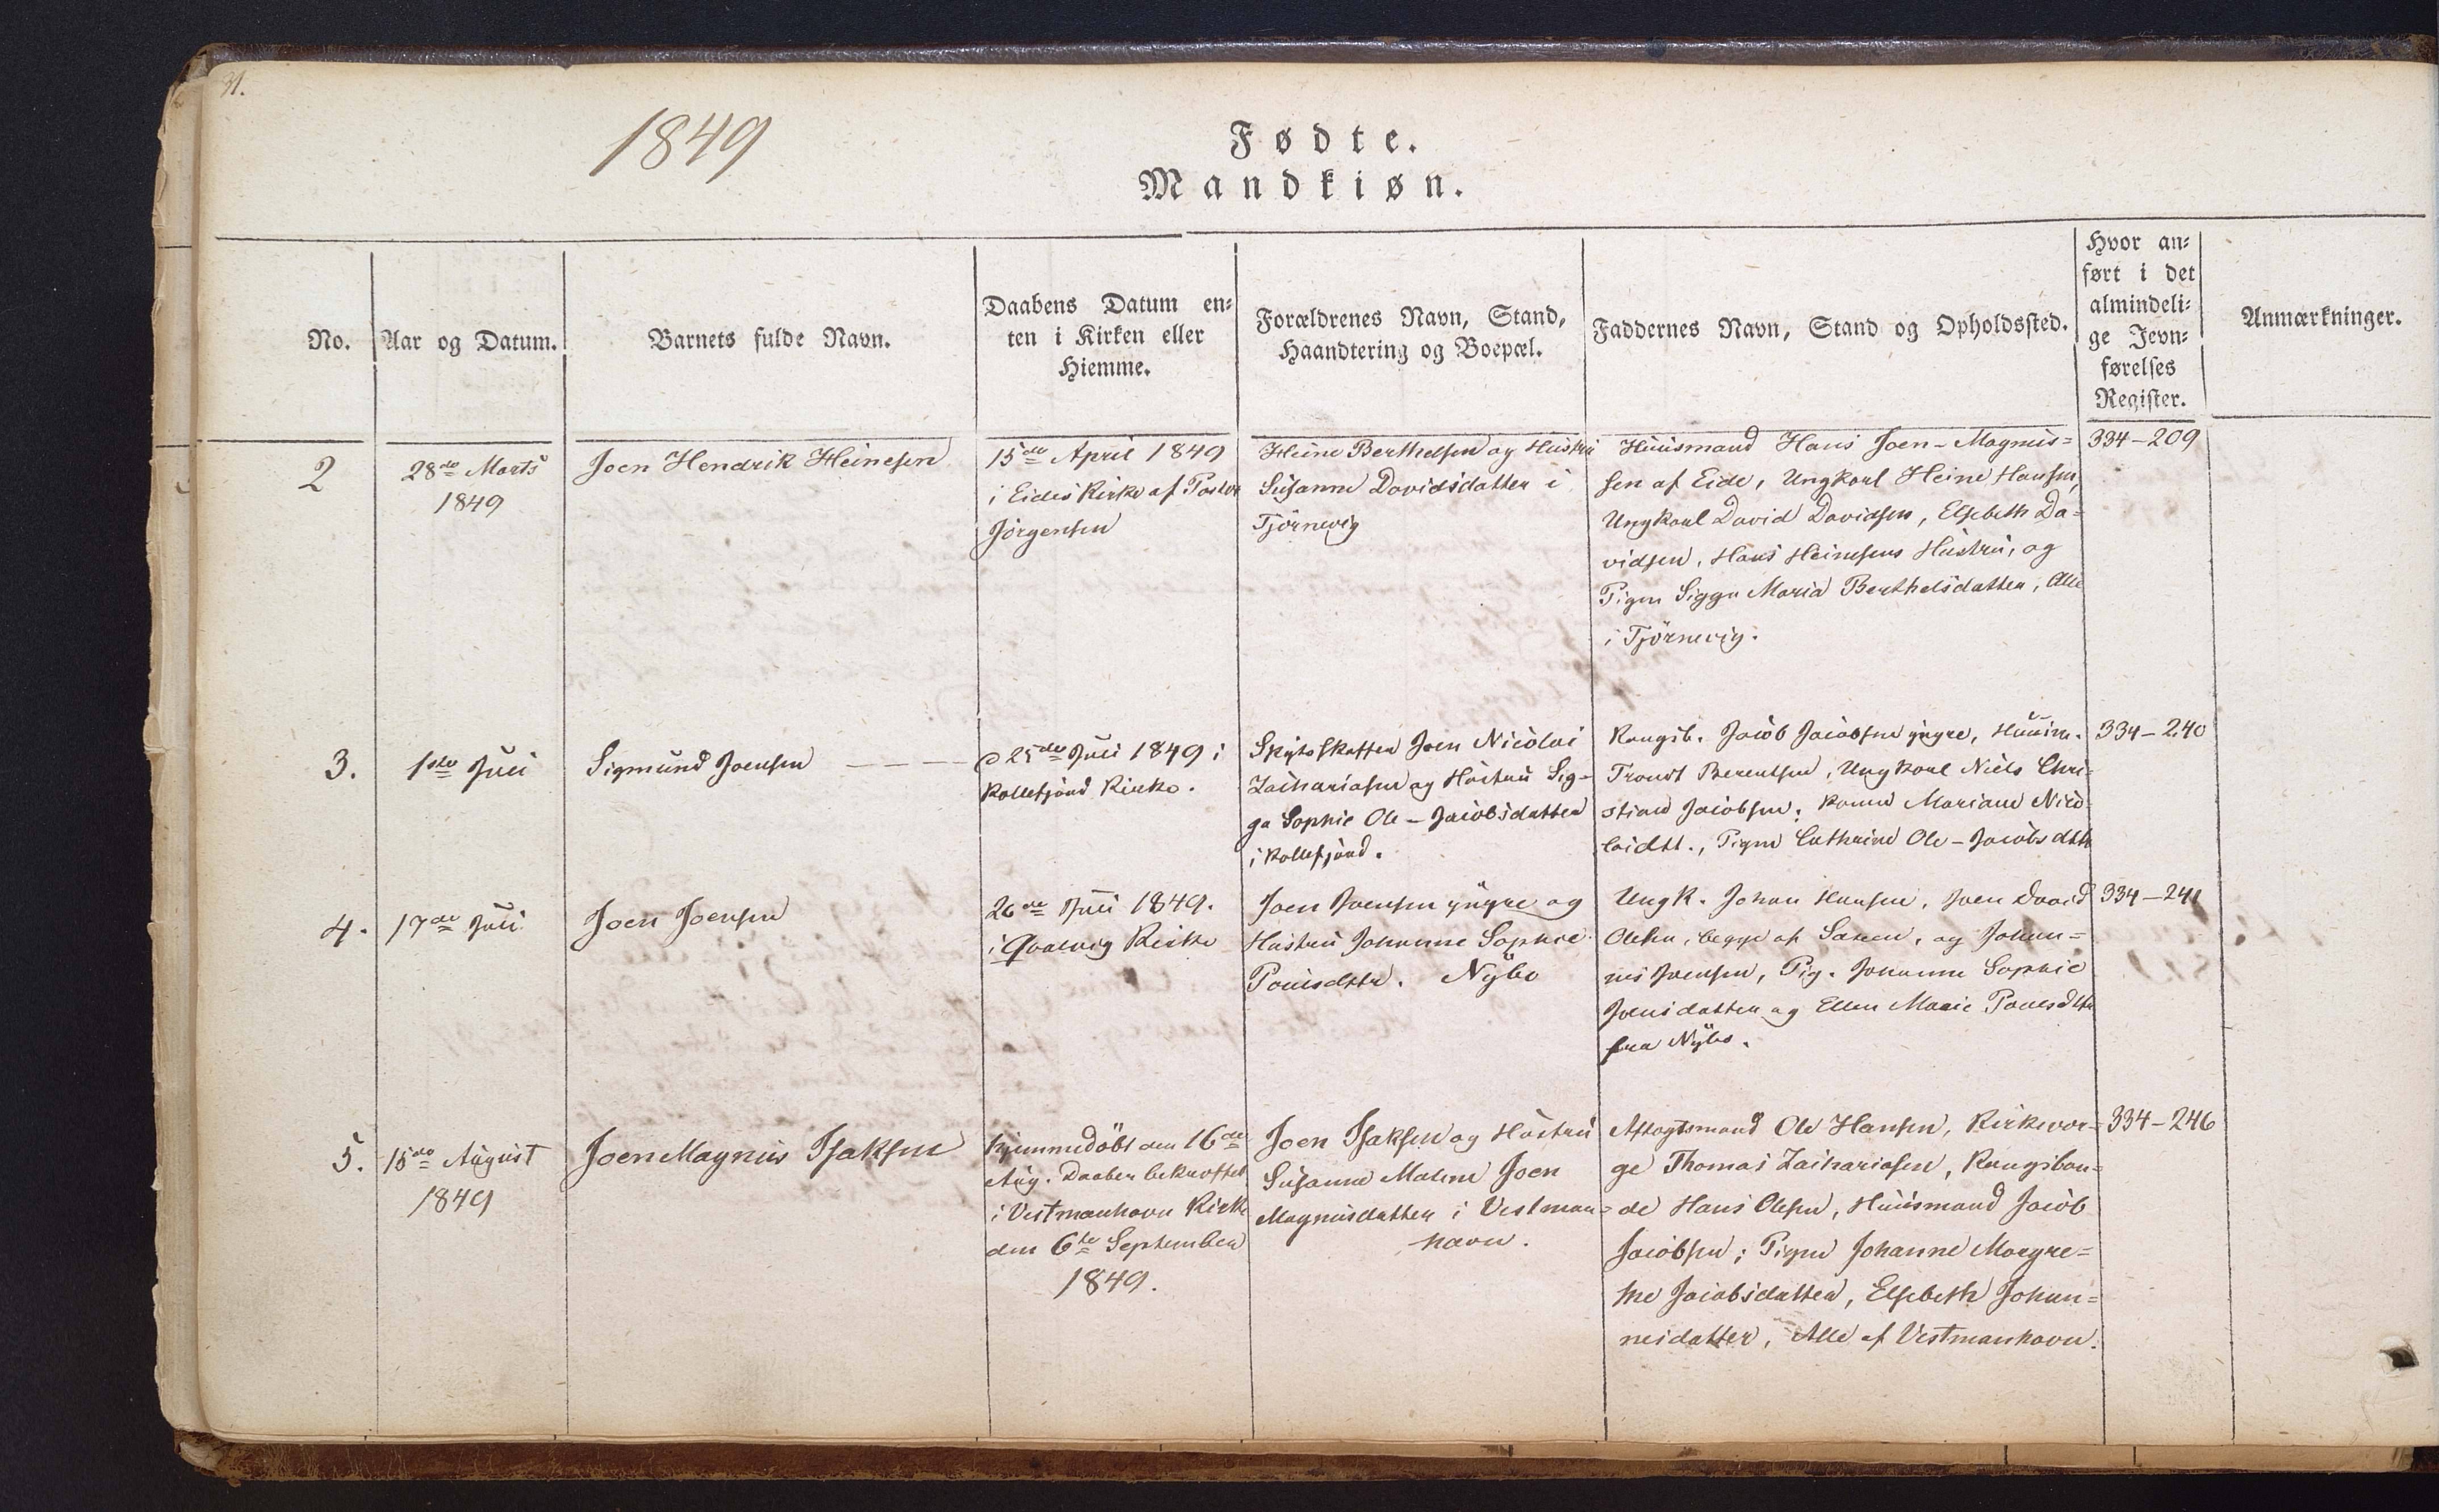 31.
1849
Fødte.
Mandkiøn.
No.
Aar og Datum.
Barnets fulde Navn.
Daabens Datum en-
ten i Kirken eller
Hiemme.
Forældrenes Navn, Stand,
Haandtering og Boepæl.
Faddernes Navn, Stand og Opholdssted.
Hvor an-
ført i det
almindeli-
ge Jevn-
førelses
Register.
Anmærkninger.
2
28de Marts
1849
Joen Hendrik Heinesen
15de April 1849
i Eides Kirke af Pastor
Jörgensen
Heine Berthelsen og Hustru
Susanne Davidsdatter i
Tjörnevig
Huusmand Hans Joen-Magnus=
sen af Eide, Ungkarl Heine Hansen,
Ungkarl David Davidsen, Elsebeth Da=
vidsen, Hans Heinesens Hustru, og
Pigen Sigga Maria Berthelsdatter, Alle
i Tjörnevig.
334-209
3.
1ste Juli
Sigmund Joensen
25de Juli 1849 i
Kollefjord Kirke.
Skydsskaffer Joen Nicolai
Zachariasen og Hustru Sig-
ga Sophie Ole-Jacobsdatter
i Kollefjord.
Kongsb. Jacob Jacobsen yngre, Huusm.
Trondt Berentsen, Ungkarl Niels Chri-
stian Jacobsen; Konen Mariane Nico-
laidtt., Pigen Cathrine Ole-Jacobsdttr
334-240
4.
17de Juli
Joen Joensen
26de Juli 1849.
i Qvalvig Kirke
Joen Joensen yngre og
Hustru Johanne Sophie
Poulsdttr. Nÿbo
Ungk. Johan Hansen, Joen David
Olesen, begge af Saxen, og Johan=
nes Joensen, Pig. Johanne Sophie
Joensdatter og Ellen Marie Poulsdttr
fra Nÿbo.
334-241
5.
15de August
1849
Joen Magnus Isaksen
Hjemmedöbt den 16de
Aug. Daaben bekræftet
i Vestmanhavn Kirke
den 6te September
1849.
Joen Isaksen og Hustru
Susanne Malene Joen
Magnusdatter i Vestman=
havn.
Aftagtsmand Ole Hansen, Kirkevær-
ge Thomas Zachariasen, Kongsbon=
de Hans Olesen, Huusmand Jacob
Jacobsen; Pigen Johanne Margre=
the Jacobsdatter, Elsebeth Johan=
nesdatter, Alle af Vestmanhavn.
334-246